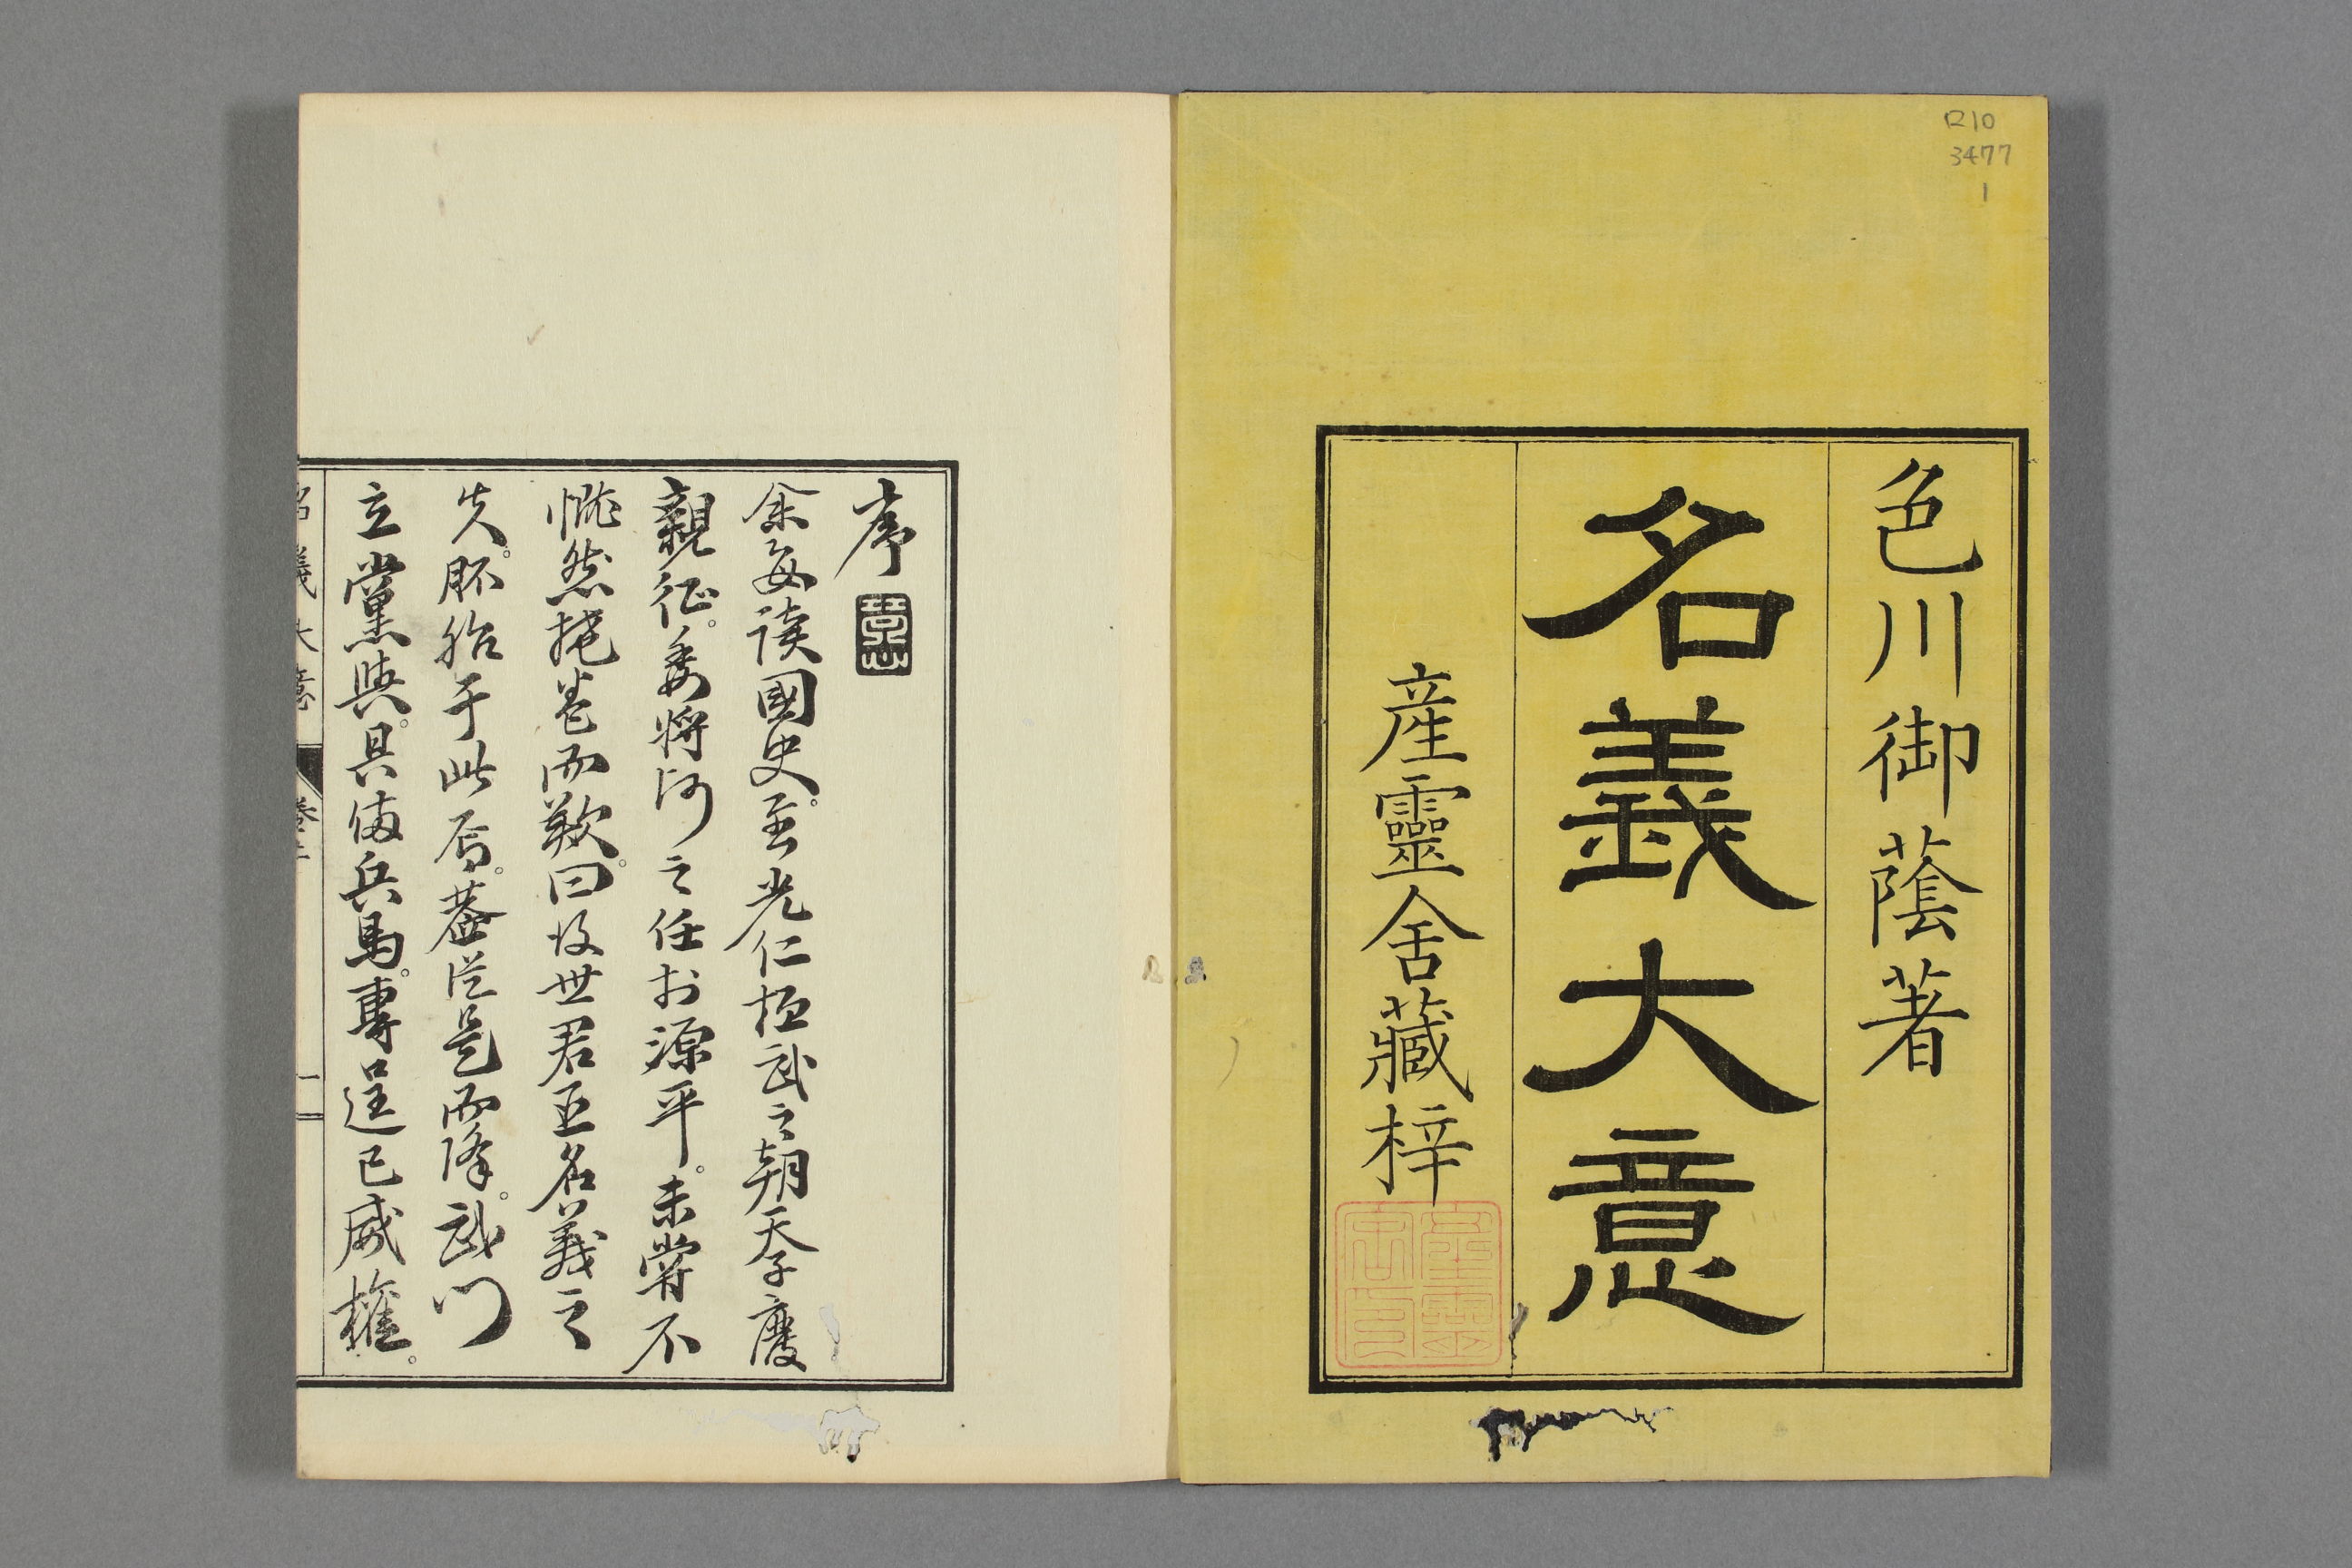 ロ10
3477
1
色川御蔭著
名義大意
産靈舍藏梓
序
余每讀國史。至光仁桓武之朝天子廢
親征。委將帥之任於源平。未嘗不
慨然掩卷而歎曰。後世君臣名義之
失。胚胎于此焉。蓋從是而降。武門
立黨與。具備兵馬。專逞己威權。
名義大意